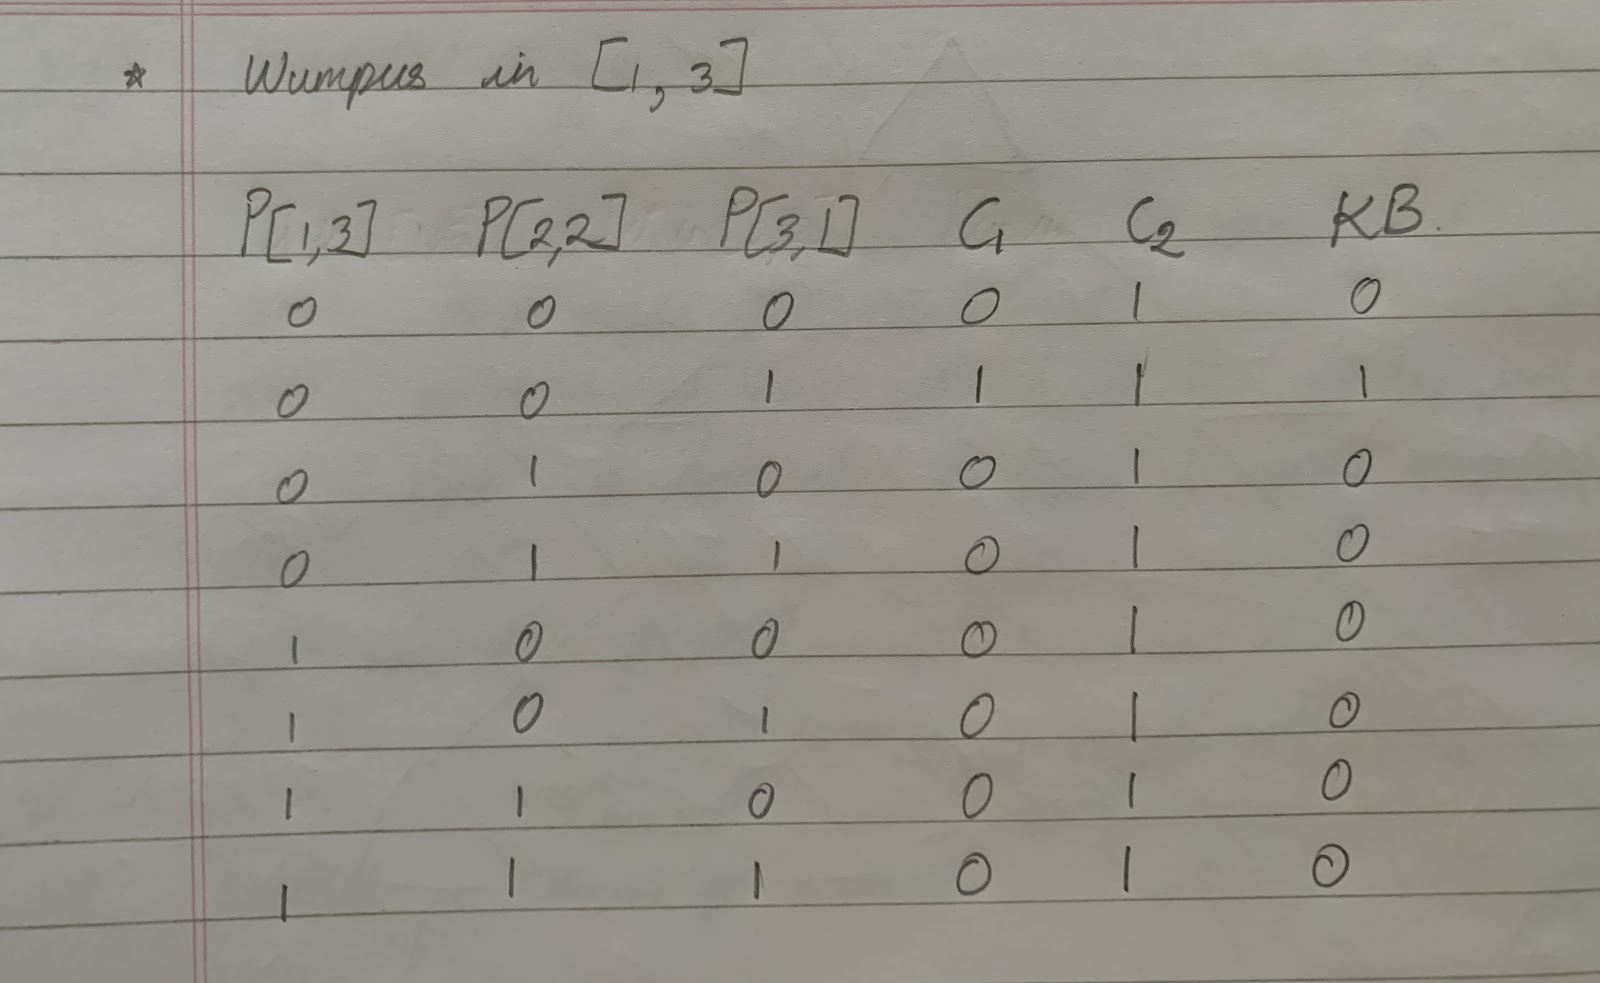 * Wumpus in [1, 3]
P[1,3] P[2,2] P[3,1] C1 C2 KB.
0 0 0 0 1 0
0 0 1 1 1 1
0 1 0 0 1 0
0 1 1 0 1 0
1 0 0 0 1 0
1 0 1 0 1 0
1 1 0 0 1 0
1 1 1 0 1 0